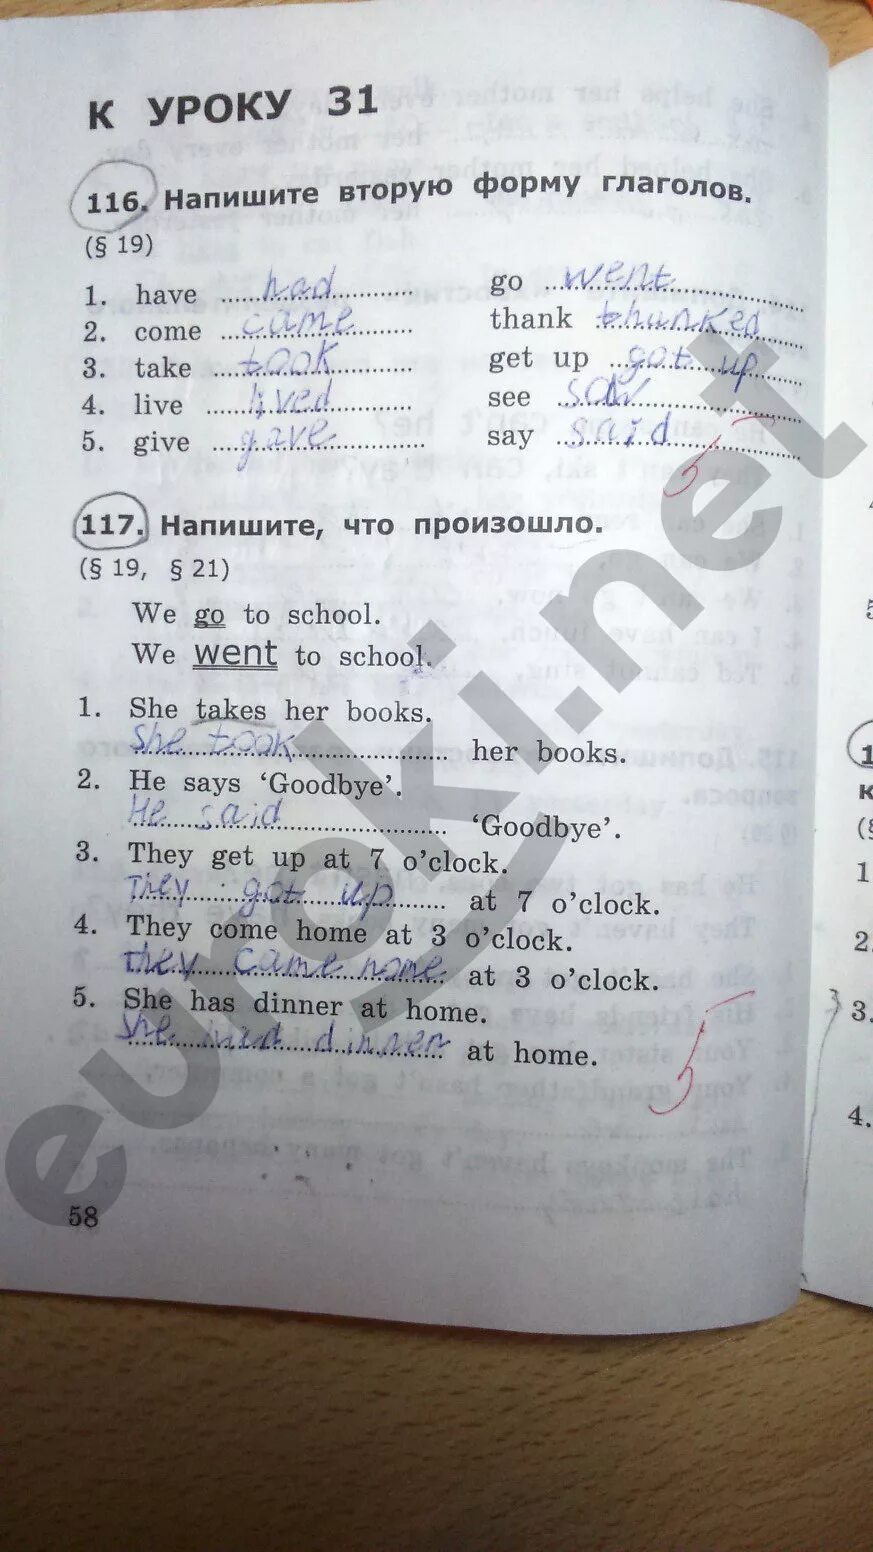 К УРОКУ 31
116. Напишите вторую форму глаголов.
(§ 19)
1. have had go went
2. come came thank thanked
3. take took get up got up
4. live lived see saw
5. give gave say said
5
117. Напишите, что произошло.
(§ 19, § 21)
We go to school.
We went to school.
1. She takes her books.
She took her books.
2. He says ‘Goodbye’.
He said ‘Goodbye’.
3. They get up at 7 o’clock.
They got up at 7 o’clock.
4. They come home at 3 o’clock.
They came home at 3 o’clock.
5. She has dinner at home.
She had dinner at home.
5
58
euroki.net
1
к
(§
1
2.
3.
4.